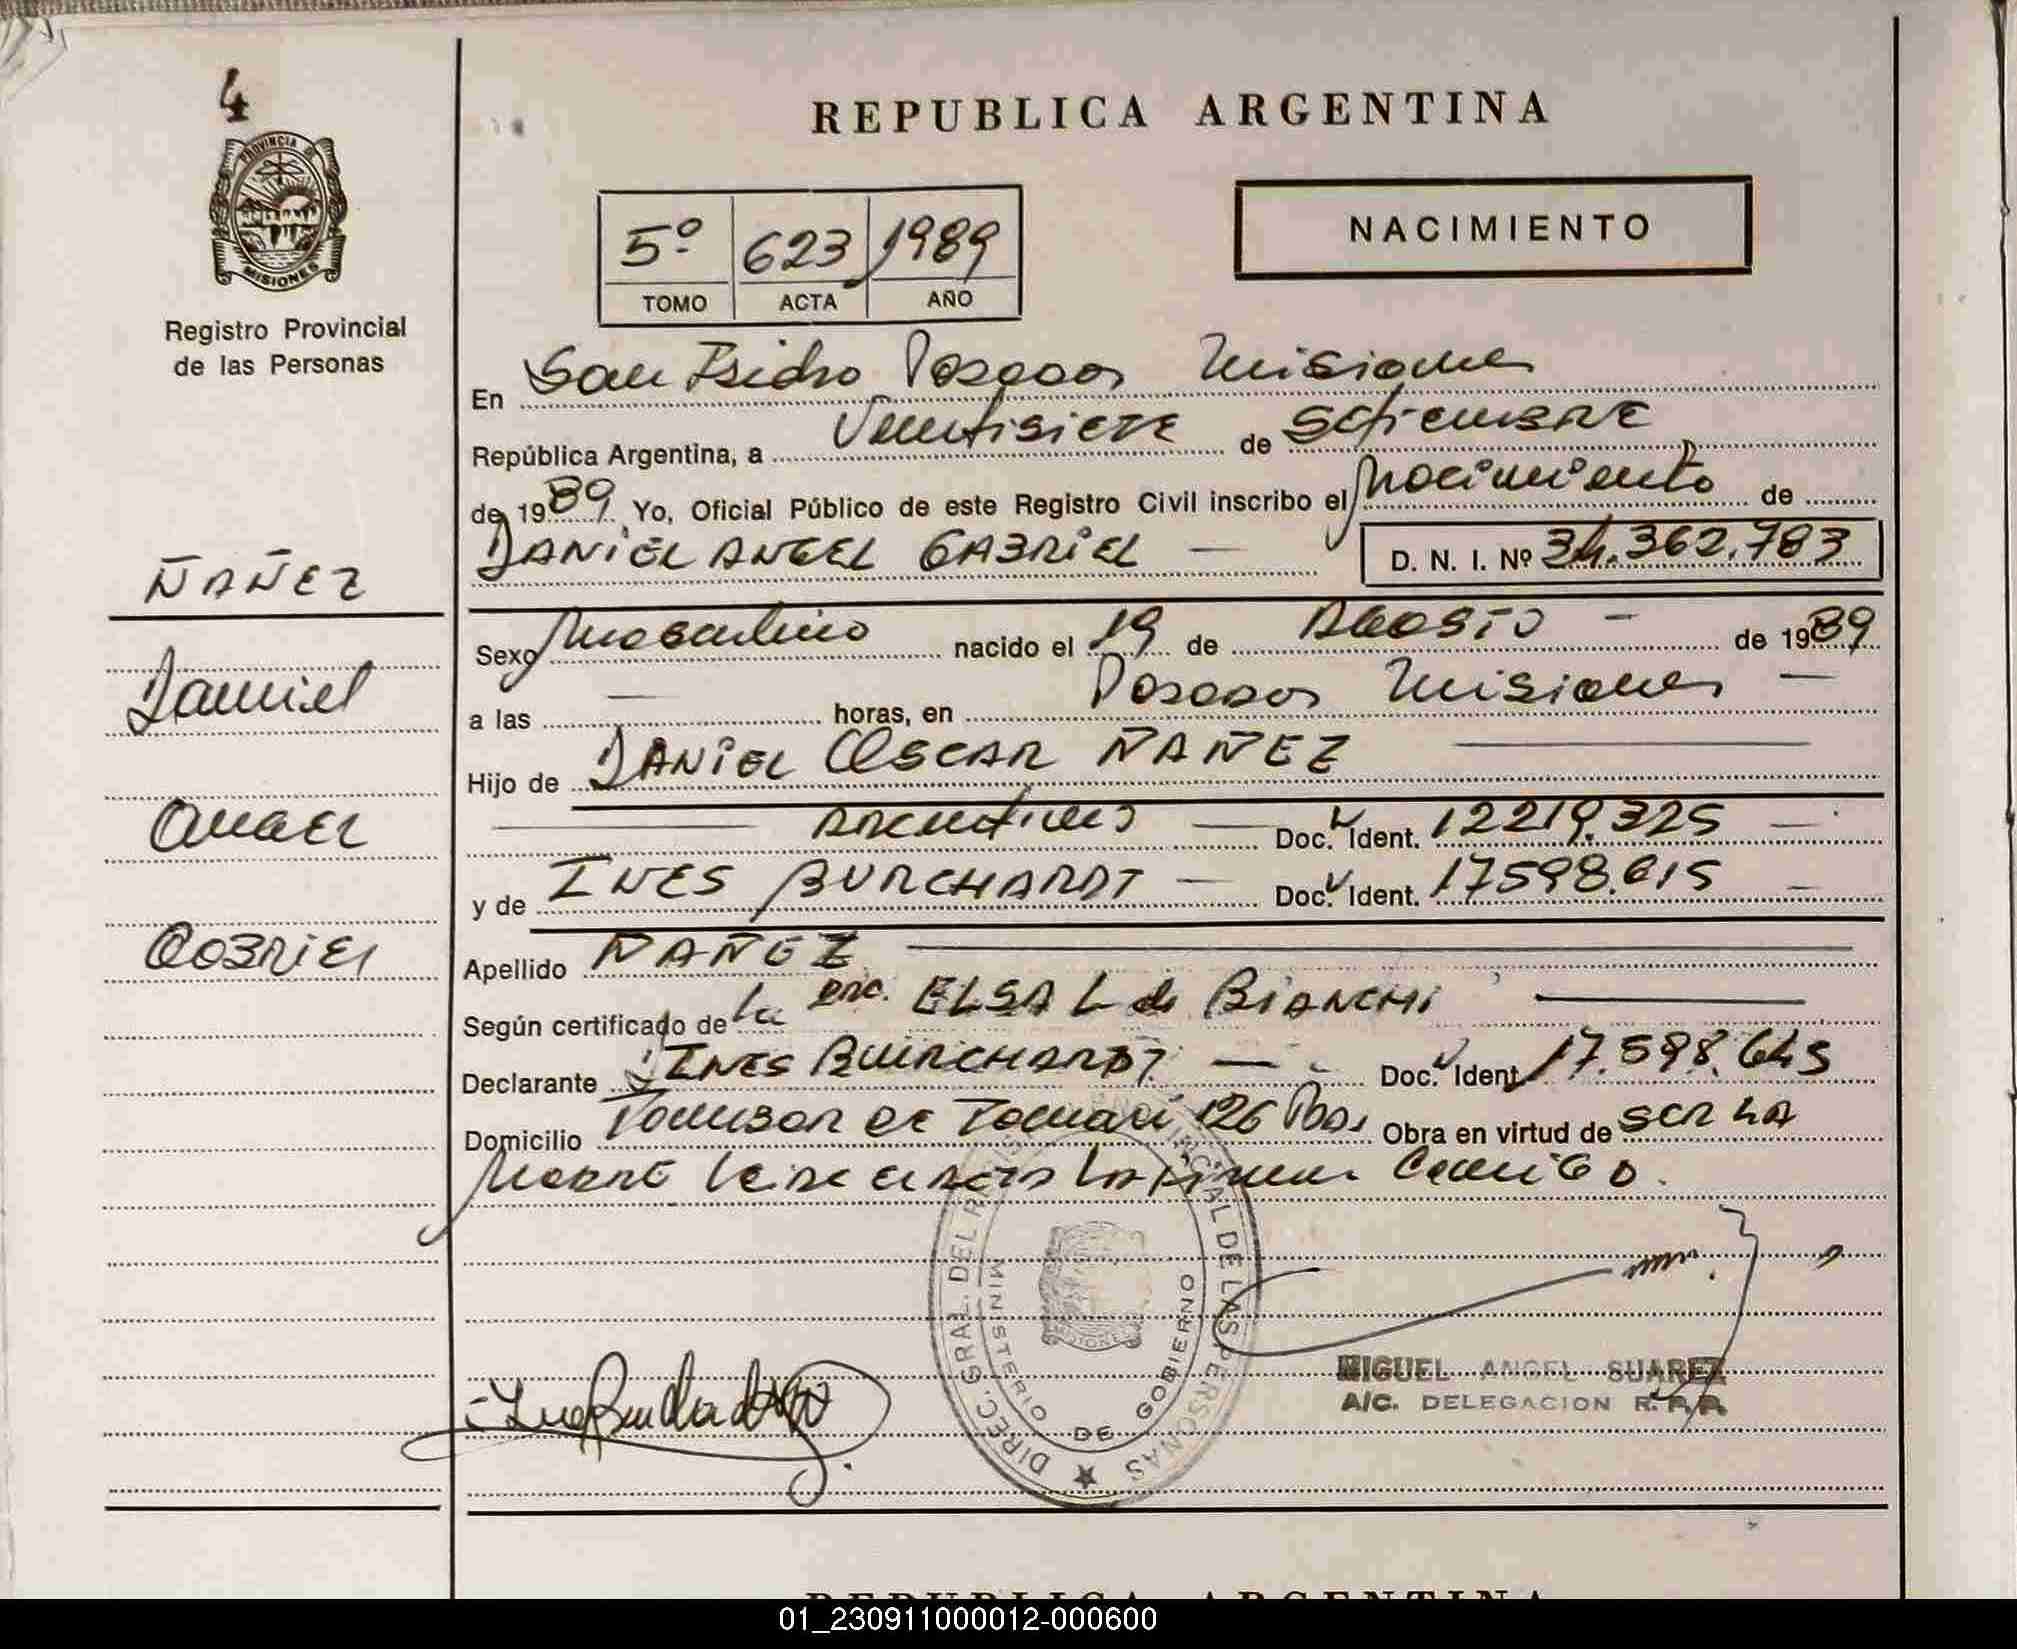 4
PROVINCIA DE
MISIONES
Registro Provincial
de las Personas
REPUBLICA ARGENTINA
5º 623 1989
TOMO ACTA AÑO
NACIMIENTO
En San Isidro Posadas Misiones
República Argentina, a Veintisiete de Setiembre
de 1989 Yo, Oficial Público de este Registro Civil inscribo el Nacimiento de
DANIEL ANGEL GABRIEL — D. N. I. Nº 34.362.783
ÑAÑEZ
Daniel
Angel
Gabriel
Sexo Masculino nacido el 19 de AGOSTO - de 1989
a las — horas, en Posadas Misiones —
Hijo de DANIEL OSCAR ÑAÑEZ
Argentinos — Doc. Ident. 12219.325 —
y de INES BURCHARDT — Doc. Ident. 17598.615 —
Apellido ÑAÑEZ
Según certificado de la ELSA L de BIANCHI
Declarante INES BURCHARDT — Doc. Ident. 17.598.645
Domicilio de 126 Pdas Obra en virtud de SER LA
Madre Leida el acta La firma Conmigo.
DIREC. GRAL. DEL REGISTRO PROVINCIAL DE LAS PERSONAS
MINISTERIO DE GOBIERNO
MISIONES
MIGUEL ANGEL SUAREZ
A/C. DELEGACION R. P. P.
REPUBLICA ARGENTINA
01_230911000012-000600